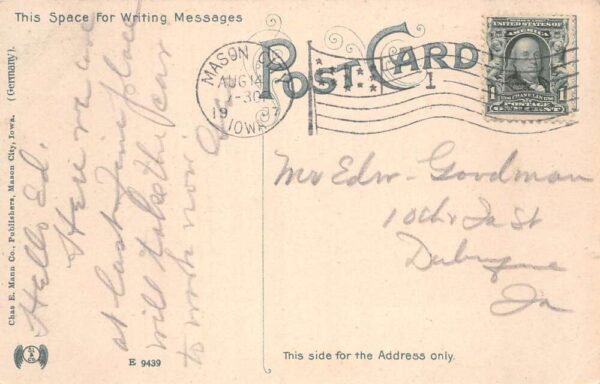 This Space For Writing Messages
POST CARD
MASON CITY
AUG 14
-30
1907
IOWA
1
UNITED STATES OF AMERICA
1 1
FRANKLIN
POSTAGE
ONE CENT
Hello Ed.
Here we are
at last. Fine place
will take the car
to work now
Mr Edw. Goodman
10th & Ia St
Dubuque
Ia
Chas E. Mann Co., Publishers, Mason City, Iowa. (Germany).
E 9439
This side for the Address only.